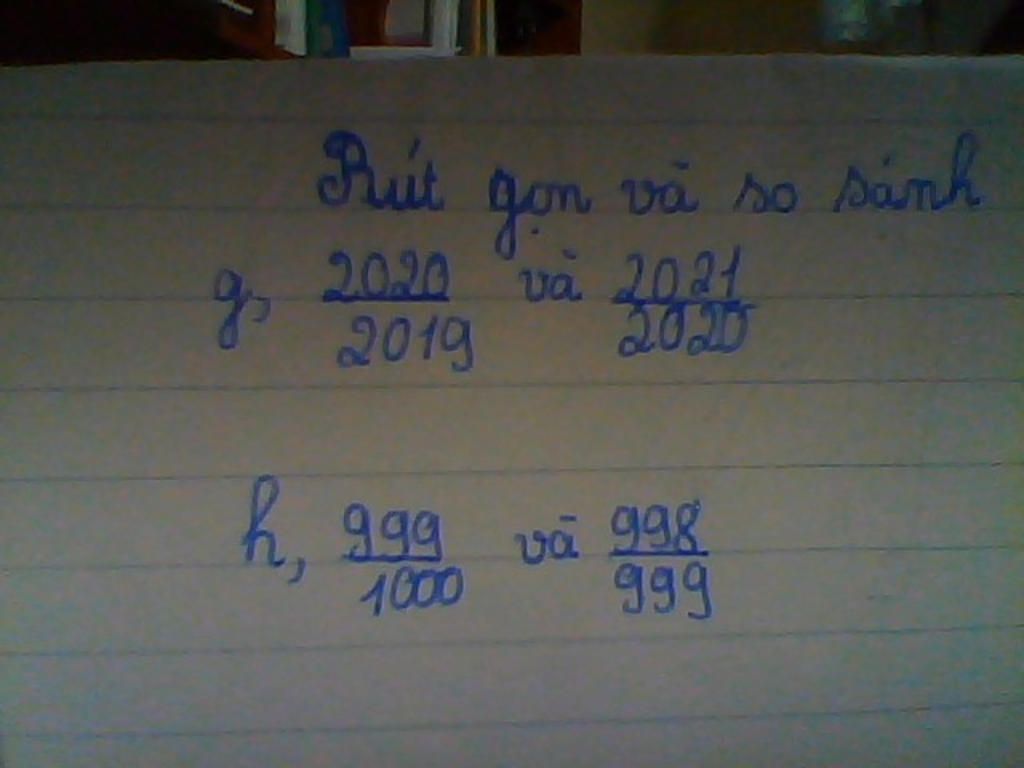 Rút gọn và so sánh
g, 2020/2019 và 2021/2020
h, 999/1000 và 998/999